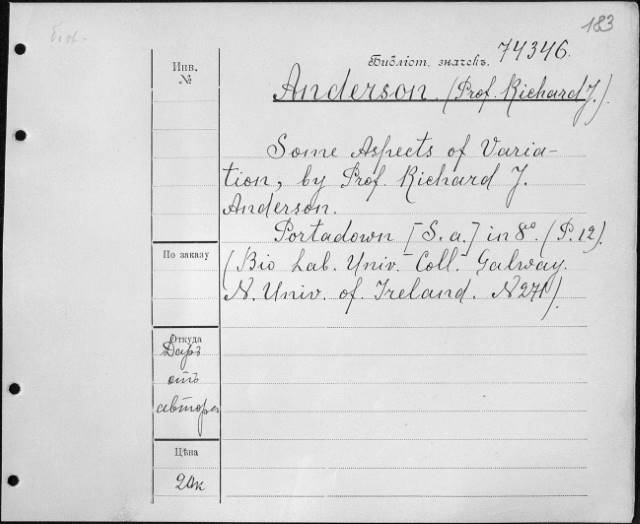 183
Библіот. значекъ. 74346.
Инв.
№
Anderson (Prof. Richard J.)
Some Aspects of Varia-
tion, by Prof. Richard J.
Anderson.
Portadown [S. a.] in 8°. (P. 12).
По заказу
(Bio Lab. Univ. Coll. Galway.
N. Univ. of Ireland. N 271)
Откуда
Даръ
отъ
автора
Цѣна
20к